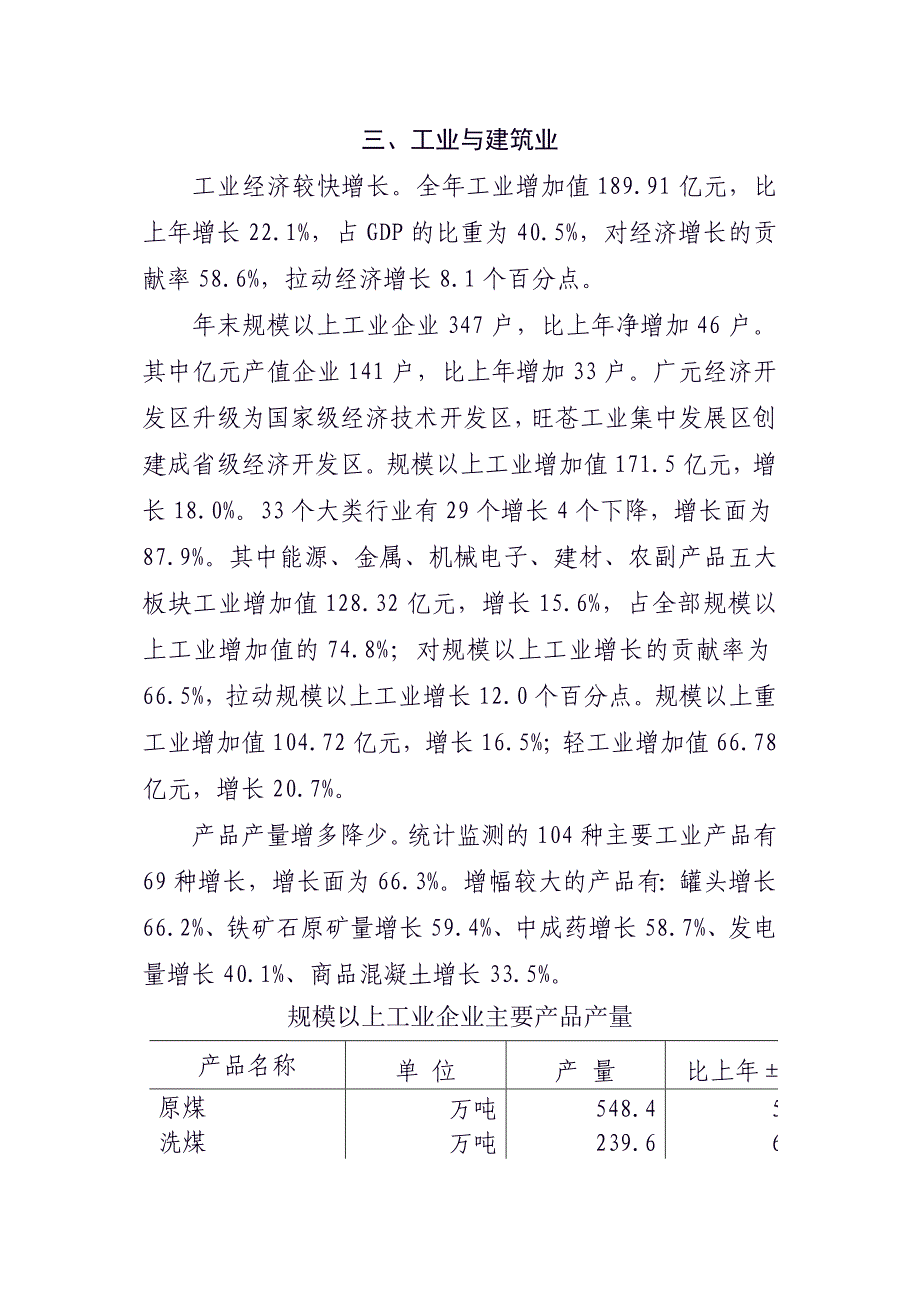 三、工业与建筑业
工业经济较快增长。全年工业增加值 189.91 亿元，比
上年增长 22.1%，占 GDP 的比重为 40.5%，对经济增长的贡
献率 58.6%，拉动经济增长 8.1 个百分点。
年末规模以上工业企业 347 户，比上年净增加 46 户。
其中亿元产值企业 141 户，比上年增加 33 户。广元经济开
发区升级为国家级经济技术开发区，旺苍工业集中发展区创
建成省级经济开发区。规模以上工业增加值 171.5 亿元，增
长 18.0%。33 个大类行业有 29 个增长 4 个下降，增长面为
87.9%。其中能源、金属、机械电子、建材、农副产品五大
板块工业增加值 128.32 亿元，增长 15.6%，占全部规模以
上工业增加值的 74.8%；对规模以上工业增长的贡献率为
66.5%，拉动规模以上工业增长 12.0 个百分点。规模以上重
工业增加值 104.72 亿元，增长 16.5%；轻工业增加值 66.78
亿元，增长 20.7%。
产品产量增多降少。统计监测的 104 种主要工业产品有
69 种增长，增长面为 66.3%。增幅较大的产品有：罐头增长
66.2%、铁矿石原矿量增长 59.4%、中成药增长 58.7%、发电
量增长 40.1%、商品混凝土增长 33.5%。
规模以上工业企业主要产品产量
产品名称 单 位 产 量 比上年±
原煤 万吨 548.4 5
洗煤 万吨 239.6